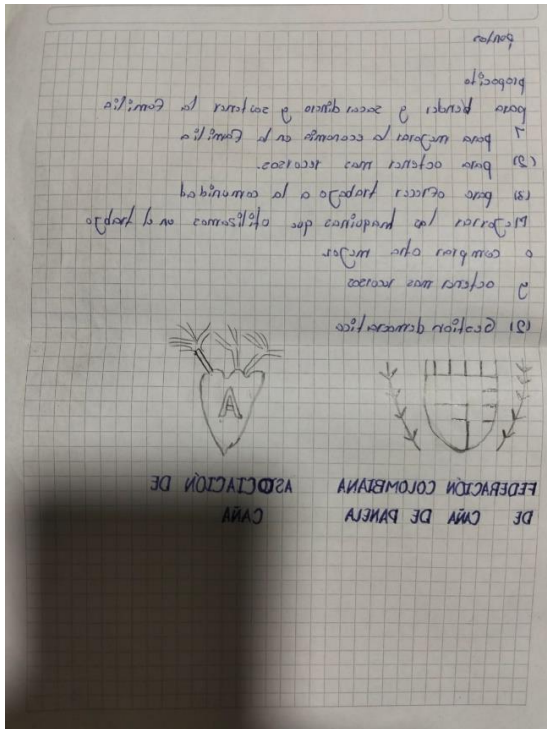 puntos
proposito
para vender y sacar dinero y sostener la Familia
1 para mejorar la economia en la Familia
(2) para octener mas recorsos.
(3) para ofrecer trabajo a la comonidad
Mejorar las maquinas que otilisamos en el trabajo
o comprar otra mejor
y octener mas recorsos
(2) Gestion democratica
A
FEDERACIÓN COLOMBIANA
DE CAÑA DE PANELA
ASOCIACIÓN DE
CAÑA